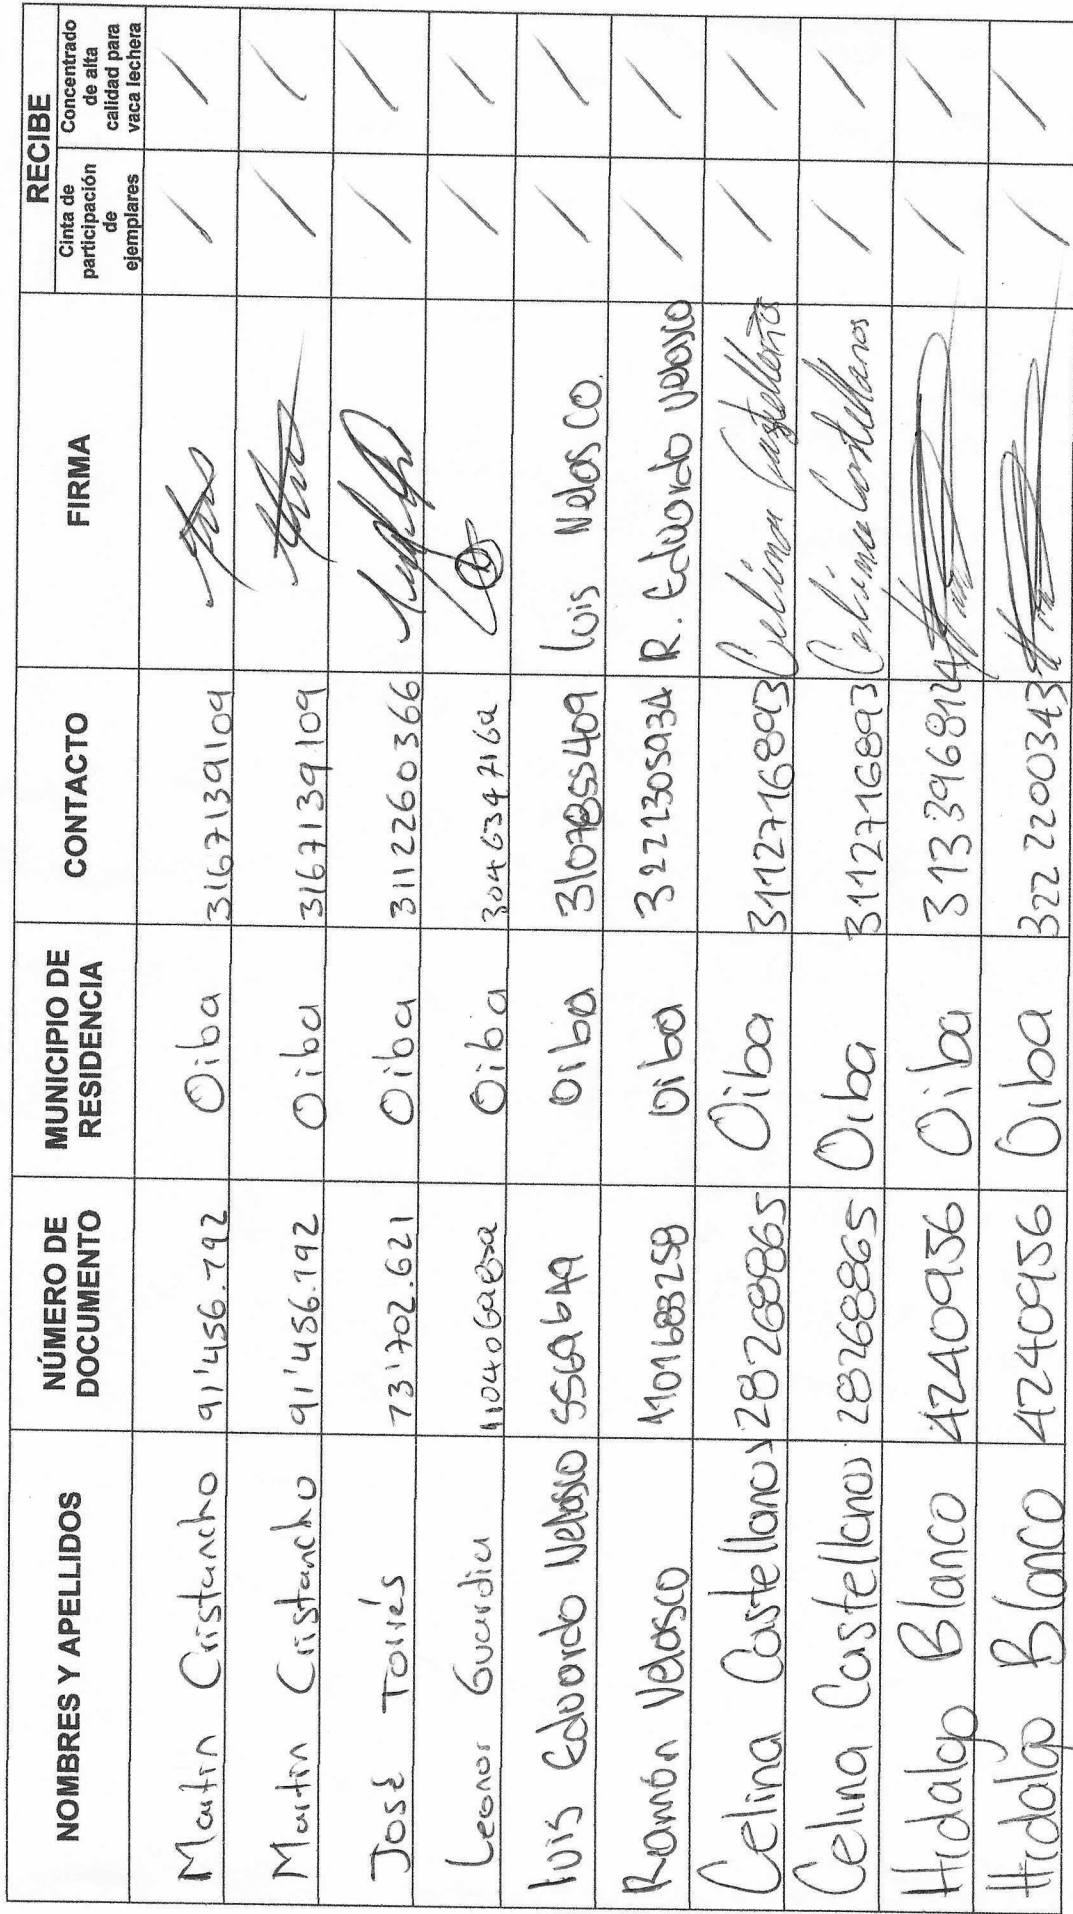 NOMBRES Y APELLIDOS NÚMERO DE DOCUMENTO MUNICIPIO DE RESIDENCIA CONTACTO FIRMA RECIBE
Cinta de participación de ejemplares Concentrado de alta calidad para vaca lechera
Martin Cristancho 91'456.792 Oiba 3167139109 / /
Martin Cristancho 91'456.792 Oiba 3167139109 / /
José Torres 73'702.621 Oiba 3112260366 / /
Leonor Guardia Oiba / /
Luis Eduardo Velasco Oiba Luis Velasco. / /
Ramón Velasco 1101683258 Oiba 3221305934 R. Eduardo Velasco / /
Celina Castellanos 28268865 Oiba 3112716893 Celina Castellanos / /
Celina Castellanos 28268865 Oiba 3112716893 Celina Castellanos / /
Hidalgo Blanco 4240956 Oiba 3133968124 / /
Hidalgo Blanco 4240956 Oiba 322 2200343 / /